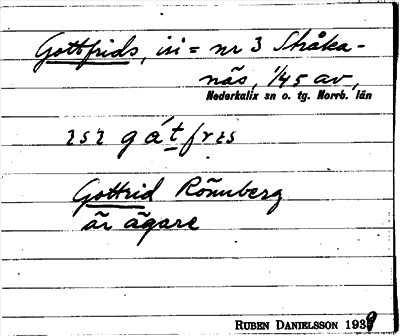 Gottfrids, iii = nr 3 Stråka-
näs, 1/45 av,
Nederkalix sn o. tg. Norrb. län
gát fres
Gottrid Rönnberg
är ägare
RUBEN DANIELSSON 1939